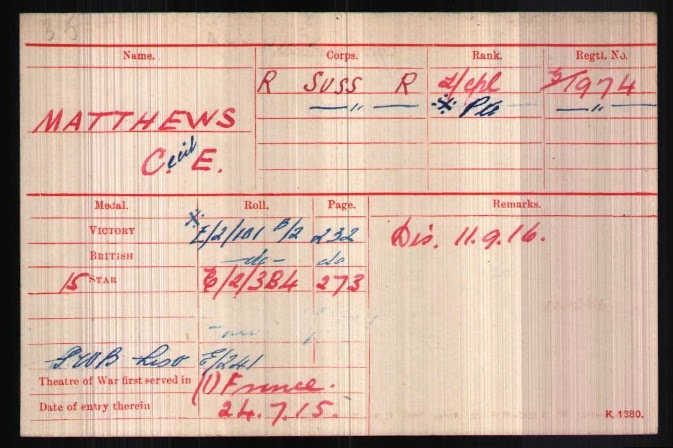 35
Name. Corps. Rank. Regtl. No.
R SUSS R L/cpl 3/1974
—"— ※ Pte —"—
MATTHEWS
Cecil E.
Medal. Roll. Page. Remarks.
VICTORY ※ E/2/101 B/2 232 Dis. 11.9.16.
BRITISH -do- do
15 STAR E/2/3B4 273
E/241
Theatre of War first served in (1) France.
Date of entry therein 24.7.15.
K. 1380.